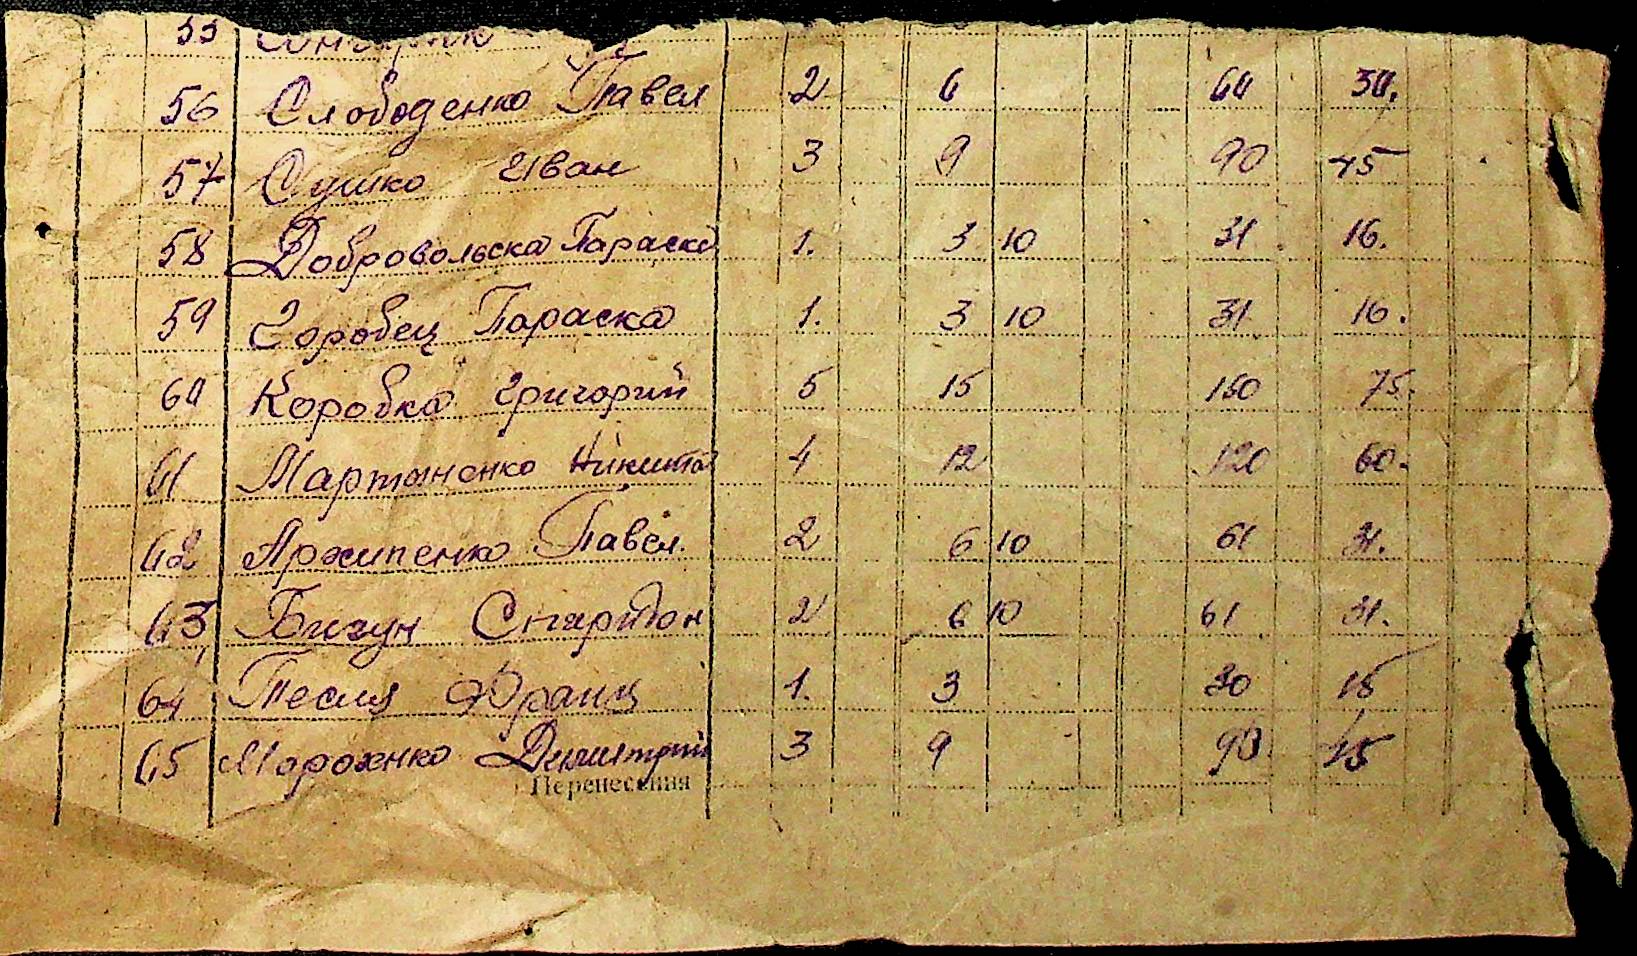 55
56 Слободенко Павел 2 6 60 30.
57 Сушко Иван 3 9 90 45
58 Добровольска Параска 1. 3 10 31 16.
59 Горобец Параска 1. 3 10 31 16.
60 Коробка Григорий 5 15 150 75.
61 Мартыненко Никита 4 12 120 60.
62 Архипенко Павел. 2 6 10 61 31.
63 Бигун Спиридон 2 6 10 61 31.
64 Тесля Франц 1. 3 30 15
65 Морохнко Димитрий 3 9 90 45
Перенесення